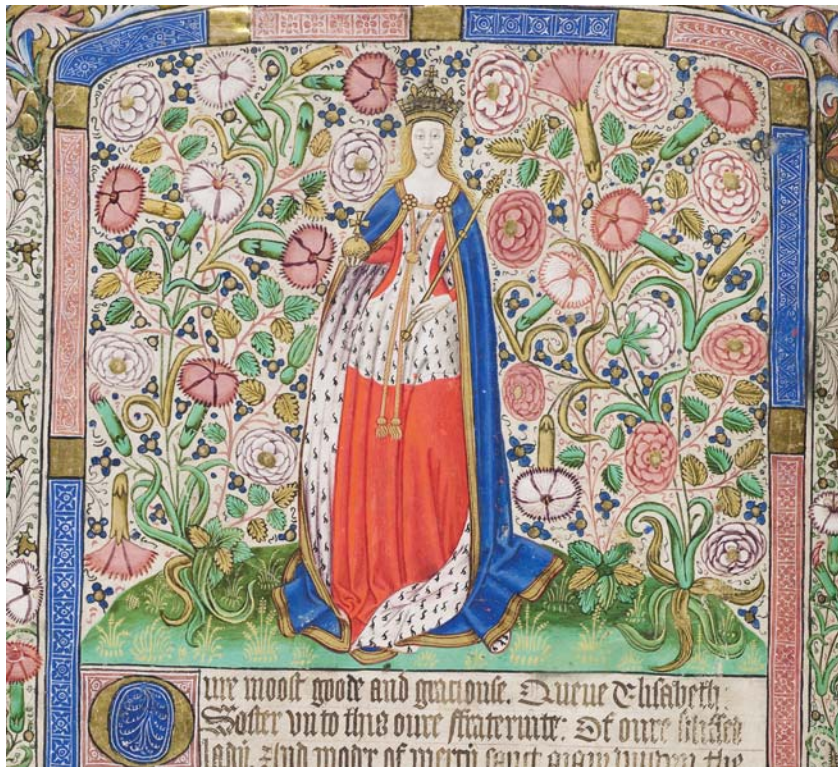 Oure moost goode and graciouse. Quene Elisabeth:
Soster vn to this oure ffraternite: Of oure blissed
lady. And modr of mercy sanct mary virgyn the